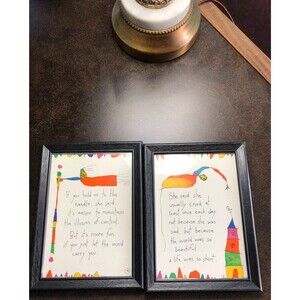 If you hold on to the
handle, she said,
it's easier to maintain
the illusion of control.
But it's more fun
if you just let the wind
carry you.
She said she
usually cried at
least once each day
not because she was
sad, but because
the world was so
beautiful
& life was so short.